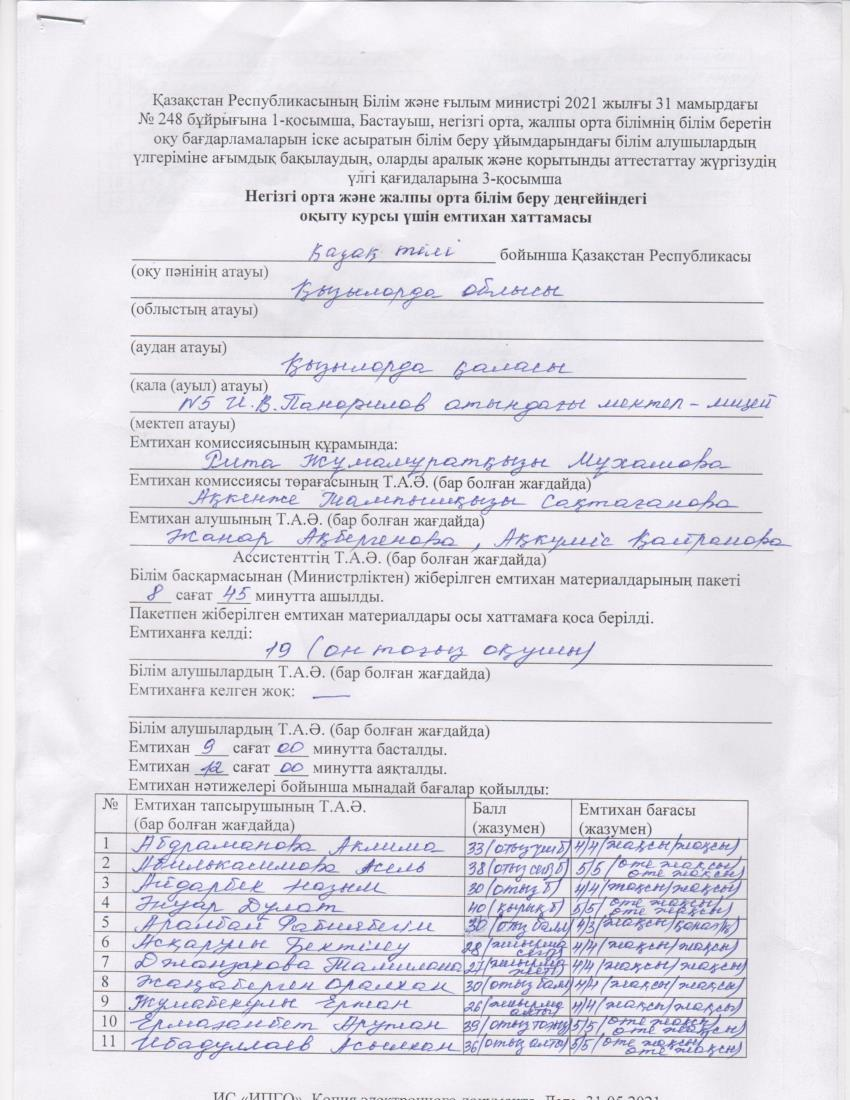 Қазақстан Республикасының Білім және ғылым министрі 2021 жылғы 31 мамырдағы
№ 248 бұйрығына 1-қосымша, Бастауыш, негізгі орта, жалпы орта білімнің білім беретін
оқу бағдарламаларын іске асыратын білім беру ұйымдарындағы білім алушылардың
үлгеріміне ағымдық бақылаудың, оларды аралық және қорытынды аттестаттау жүргізудің
үлгі қағидаларына 3-қосымша
Негізгі орта және жалпы орта білім беру деңгейіндегі
оқыту курсы үшін емтихан хаттамасы
Қазақ тілі бойынша Қазақстан Республикасы
(оқу пәнінің атауы)
Қызылорда облысы
(облыстың атауы)
(аудан атауы)
Қызылорда қаласы
(қала (ауыл) атауы)
N5 И.В.Панфилов атындағы мектеп-лицей
(мектеп атауы)
Емтихан комиссиясының құрамында:
Рита Жұмамұратқызы Мұхашова
Емтихан комиссиясы төрағасының Т.А.Ә. (бар болған жағдайда)
Ақкенже Тампышқызы Сақтағанова
Емтихан алушының Т.А.Ә. (бар болған жағдайда)
Жанар Ақбергенова, Ақкүміс Қайранова
Ассистенттің Т.А.Ә. (бар болған жағдайда)
Білім басқармасынан (Министрліктен) жіберілген емтихан материалдарының пакеті
8 сағат 45 минутта ашылды.
Пакетпен жіберілген емтихан материалдары осы хаттамаға қоса берілді.
Емтиханға келді:
19 (он тоғыз оқушы)
Білім алушылардың Т.А.Ә. (бар болған жағдайда)
Емтиханға келген жоқ: —
Білім алушылардың Т.А.Ә. (бар болған жағдайда)
Емтихан 9 сағат 00 минутта басталды.
Емтихан 12 сағат 00 минутта аяқталды.
Емтихан нәтижелері бойынша мынадай бағалар қойылды:
№ Емтихан тапсырушының Т.А.Ә. (бар болған жағдайда) Балл (жазумен) Емтихан бағасы (жазумен)
1 Абдраманова Аклима 33 (отыз үш б) 4/4 (жақсы/жақсы)
2 Абилькасимова Асель 38 (отыз сегіз б) 5/5 (өте жақсы/өте жақсы)
3 Айдарбек Назым 30 (отыз б) 4/4 (жақсы/жақсы)
4 Жуар Дулат 40 (қырық б) 5/5 (өте жақсы/өте жақсы)
5 Аралбай 30 (отыз балл) 4/3 (жақсы/қанағ/қ)
6 Асқарұлы Бектілеу 28 (жиырма сегіз) 4/4 (жақсы/жақсы)
7 27 (жиырма жеті) 4/4 (жақсы/жақсы)
8 Жаңаберген Оралхан 30 (отыз балл) 4/4 (жақсы/жақсы)
9 Жұмабекұлы Ерман 26 (жиырма алты) 4/4 (жақсы/жақсы)
10 Ермаганбет Аружан 39 (отыз тоғыз) 5/5 (өте жақсы/өте жақсы)
11 Ибадуллаев Асылхан 36 (отыз алты) 5/5 (өте жақсы/өте жақсы)